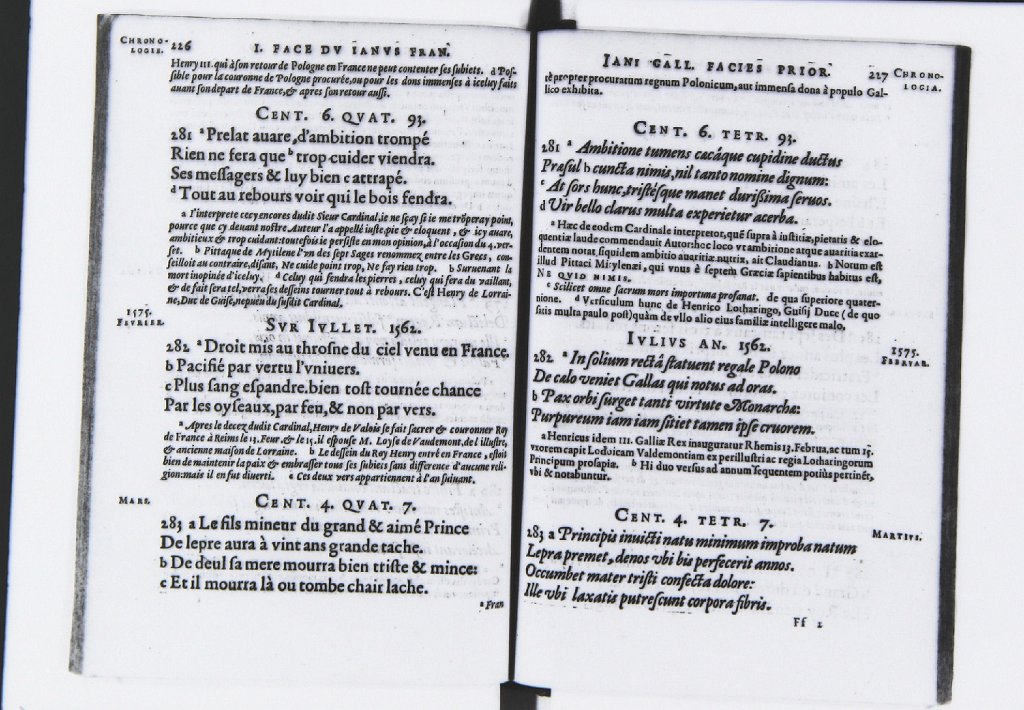 CHRONO-
LOGIE.
226
I. FACE DV IANVS FRAN.
Henry III. qui à son retour de Pologne en France ne peut contenter ses subiets. d Pos-
sible pour la couronne de Pologne procurée, ou pour les dons immenses à iceluy faits
auant son depart de France, & apres son retour aussi.
CENT. 6. QVAT. 93.
281 a Prelat auare, d'ambition trompé
Rien ne fera que b trop cuider viendra.
Ses messagers & luy bien c attrapé.
d Tout au rebours voir qui le bois fendra.
a I'interprete cecy encores dudit Sieur Cardinal, ie ne sçay si ie me trõperay point,
pource que cy deuant nostre Auteur l'a appellé iuste, pie & eloquent, & icy auare,
ambitieux & trop cuidant: toutefois ie persiste en mon opinion, à l'occasion du 4. ver-
set. b Pittaque de Mytilene l'vn des sept Sages renommez entre les Grecs, con-
seilloit au contraire, disant, Ne cuide point trop, Ne fay rien trop. b Suruenant la
mort inopinée d'iceluy. d Celuy qui fendra les pierres, celuy qui sera du vaillant,
& de fait sera tel, verra ses desseins tourner tout à rebours. C'est Henry de Lorrai-
ne, Duc de Guise, nepueu du susdit Cardinal.
1575.
FEVRIER.
SVR IVLLET. 1562.
282 a Droit mis au throsne du ciel venu en France.
b Pacifié par vertu l'vniuers.
c Plus sang espandre, bien tost tournée chance
Par les oyseaux, par feu, & non par vers.
a Apres le decez dudit Cardinal, Henry de Valois se fait sacrer & couronner Roy
de France à Reims le 13. Feur. & le 15. il espouse M. Loyse de Vaudemont, de l'illustre,
& ancienne maison de Lorraine. b Le dessein du Roy Henry entré en France, estoit
bien de maintenir la paix & embrasser tous ses subiets sans difference d'aucune reli-
gion: mais il en fut diuerti. c Ces deux vers appartiennent à l'an suiuant.
MARS.
CENT. 4. QVAT. 7.
283 a Le fils mineur du grand & aimé Prince
De lepre aura à vint ans grande tache.
b De deul sa mere mourra bien triste & mince:
c Et il mourra là ou tombe chair lache.
a Fran
IANI GALL. FACIES PRIOR.
227
CHRONO-
LOGIA.
rè propter procuratum regnum Polonicum, aut immensa dona à populo Gal-
lico exhibita.
CENT. 6. TETR. 93.
281 a Ambitione tumens cacáque cupidine ductus
Præsul b cuncta nimis, nil tanto nomine dignum:
c At sors hunc, tristésque manet durissima seruos.
d Vir bello clarus multa experietur acerba.
a Hæc de eodem Cardinale interpretor, quẽ suprà à iustitiæ, pietatis & elo-
quentiæ laude commendauit Autor: hoc loco vt ambitione atque auaritia exar-
dentem notat, siquidem ambitio auaritiæ nutrix, ait Claudianus. b Notum est
illud Pittaci Mitylenæi, qui vnus è septem Græciæ sapientibus habitus est,
NE QVID NIMIS.
c Scilicet omne sacrum mors importuna profanat. de qua superiore quater-
nione. d Versiculum hunc de Henrico Lotharingo, Guisij Duce (de quo
satis multa paulo post) quàm de vllo alio eius familiæ intelligere malo.
IVLIVS AN. 1562.
1575.
FEBRVAR.
282 a In solium rectâ statuent regale Polono
De cælo venies Gallas qui notus ad oras.
b Pax orbi surget tanti virtute Monarchæ:
Purpureum iam iam sitiet tamen ipse cruorem.
a Henricus idem III. Galliæ Rex inauguratur Rhemis 13. Februa, ac tum 15.
vxorem capit Lodoicam Valdemontiam ex perillustri ac regia Lotharingorum
Principum prosapia. b Hi duo versus ad annum sequentem potiùs pertinẽt,
vbi & notabuntur.
CENT. 4. TETR. 7.
MARTIVS.
283 a Principis inuicti natu minimum improba natum
Lepra premet, denos vbi bis perfecerit annos.
Occumbet mater tristi confecta dolore:
Ille vbi laxatis putrescunt corpora fibris.
Ff 2